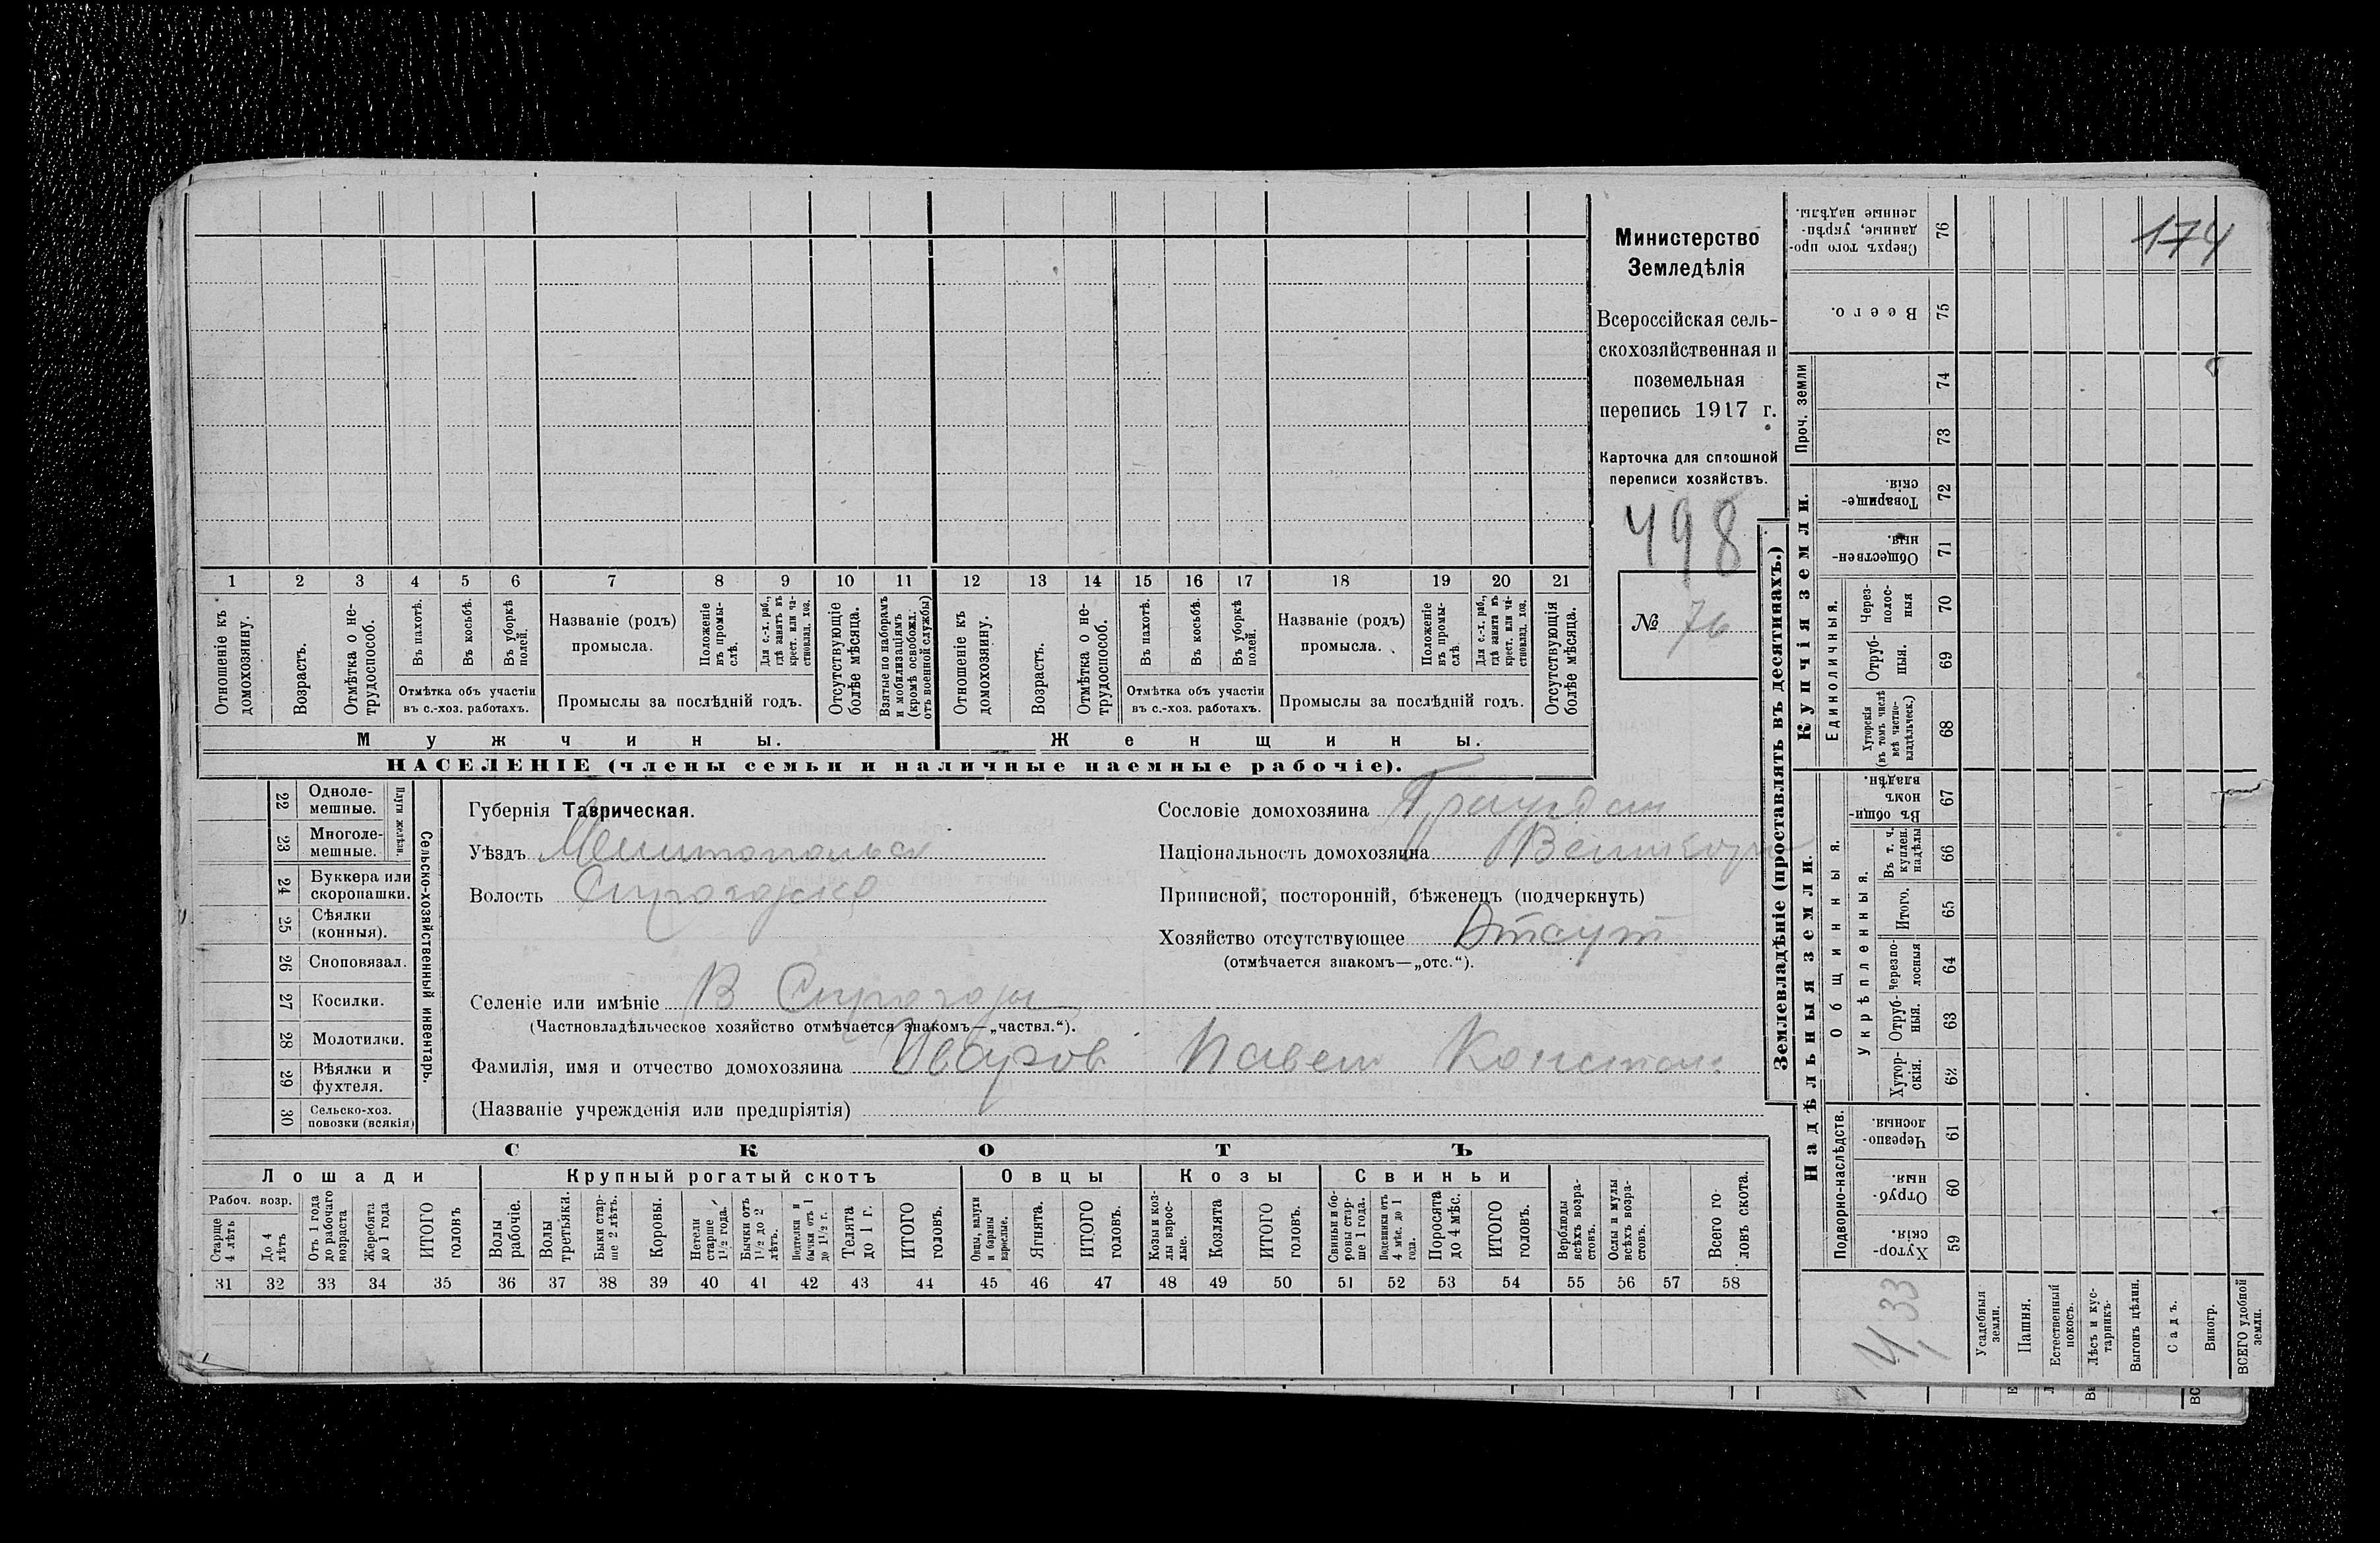 Министерство
Земледѣлія
Всероссійская сель-
скохозяйственная и
поземельная
перепись 1917 г.
Карточка для сплошной
переписи хозяйствъ.
498
№ 76
174
1 2 3 4 5 6 7 8 9 10 11 12 13 14 15 16 17 18 19 20 21
Отношеніе къ домохозяину.
Возрастъ.
Отмѣтка о не-трудоспособ.
Въ пахотѣ.
Въ косьбѣ.
Въ уборкѣ полей.
Отмѣтка объ участіи въ с.-хоз. работахъ.
Названіе (родъ) промысла.
Положеніе въ промы-слѣ.
Для с.-х. раб., гдѣ занятъ въ крест. или ча-стновлад. хоз.
Промыслы за послѣдній годъ.
Отсутствующіе болѣе мѣсяца.
Взятые по наборамъ и мобилизаціямъ (кромѣ освобожд. отъ военной службы)
Отношеніе къ домохозяину.
Возрастъ.
Отмѣтка о не-трудоспособ.
Въ пахотѣ.
Въ косьбѣ.
Въ уборкѣ полей.
Отмѣтка объ участіи въ с.-хоз. работахъ.
Названіе (родъ) промысла.
Положеніе въ промы-слѣ.
Для с.-х. раб., гдѣ занята въ крест. или ча-стновлад. хоз.
Промыслы за послѣдній годъ.
Отсутствующія болѣе мѣсяца.
Мужчины.
Женщины.
НАСЕЛЕНІЕ (члены семьи и наличные наемные рабочіе).
22 Одноле-мешные.
23 Многоле-мешные.
Плуги желѣзн.
24 Буккера или скоропашки.
25 Сѣялки (конныя).
26 Сноповязал.
27 Косилки.
28 Молотилки.
29 Вѣялки и фухтеля.
30 Сельско-хоз. повозки (всякія)
Сельско-хозяйственный инвентарь.
Губернія Таврическая.
Уѣздъ Мелитопольск
Волость
Сословіе домохозяина
Національность домохозяина
Приписной, посторонній, бѣженецъ (подчеркнуть)
Хозяйство отсутствующее Отсут
(отмѣчается знакомъ—„отс.“).
Селеніе или имѣніе В
(Частновладѣльческое хозяйство отмѣчается знакомъ—„частвл.“).
Фамилія, имя и отчество домохозяина Павел Констан
(Названіе учрежденія или предпріятія)
СКОТЪ
Лошади
Крупный рогатый скотъ
Овцы
Козы
Свиньи
Рабоч. возр.
Старше 4 лѣтъ
До 4 лѣтъ
Отъ 1 года до рабочаго возраста
Жеребята до 1 года
ИТОГО головъ
Волы рабочіе.
Волы третьяки.
Быки стар-ше 2 лѣтъ.
Коровы.
Нетели старше 1½ года.
Бычки отъ 1½ до 2 лѣтъ.
Подтелки и бычки отъ 1 до 1½ г.
Телята до 1 г.
ИТОГО головъ.
Овцы, валухи и бараны взрослые.
Ягнята.
ИТОГО головъ.
Козы и коз-лы взрос-лые.
Козлята
ИТОГО головъ.
Свиньи и бо-ровы стар-ше 1 года.
Подсвинки отъ 4 мѣс. до 1 года.
Поросята до 4 мѣс.
ИТОГО головъ.
Верблюды всѣхъ возра-стовъ.
Ослы и мулы всѣхъ возра-стовъ.
Всего го-ловъ скота.
31 32 33 34 35 36 37 38 39 40 41 42 43 44 45 46 47 48 49 50 51 52 53 54 55 56 57 58
Землевладѣніе (проставлять въ десятинахъ.)
Купчія земли.
Надѣльныя земли.
Сверхъ того про-данные, укрѣп-ленные надѣлы. 76
Всего. 75
Проч. земли
74
73
Товарище-скія. 72
Обществен-ныя. 71
Единоличныя.
Через-полос-ныя 70
Отруб-ныя. 69
Хуторскія (въ томъ числѣ всѣ частно-владѣльческ.) 68
Общинныя.
Въ общи-номъ владѣн. 67
Укрѣпленныя.
Въ т. ч. куплен. надѣлы 66
Итого. 65
Черезпо-лосныя 64
Отруб-ныя. 63
Хутор-скія. 62
Подворно-наслѣдств.
Черезпо-лосныя. 61
Отруб-ныя. 60
Хутор-скія. 59
4,33
Усадебныя земли.
Пашня.
Естественный покосъ.
Лѣсъ и кус-тарникъ.
Выгонъ цѣлин.
Садъ.
Виногр.
ВСЕГО удобной земли.